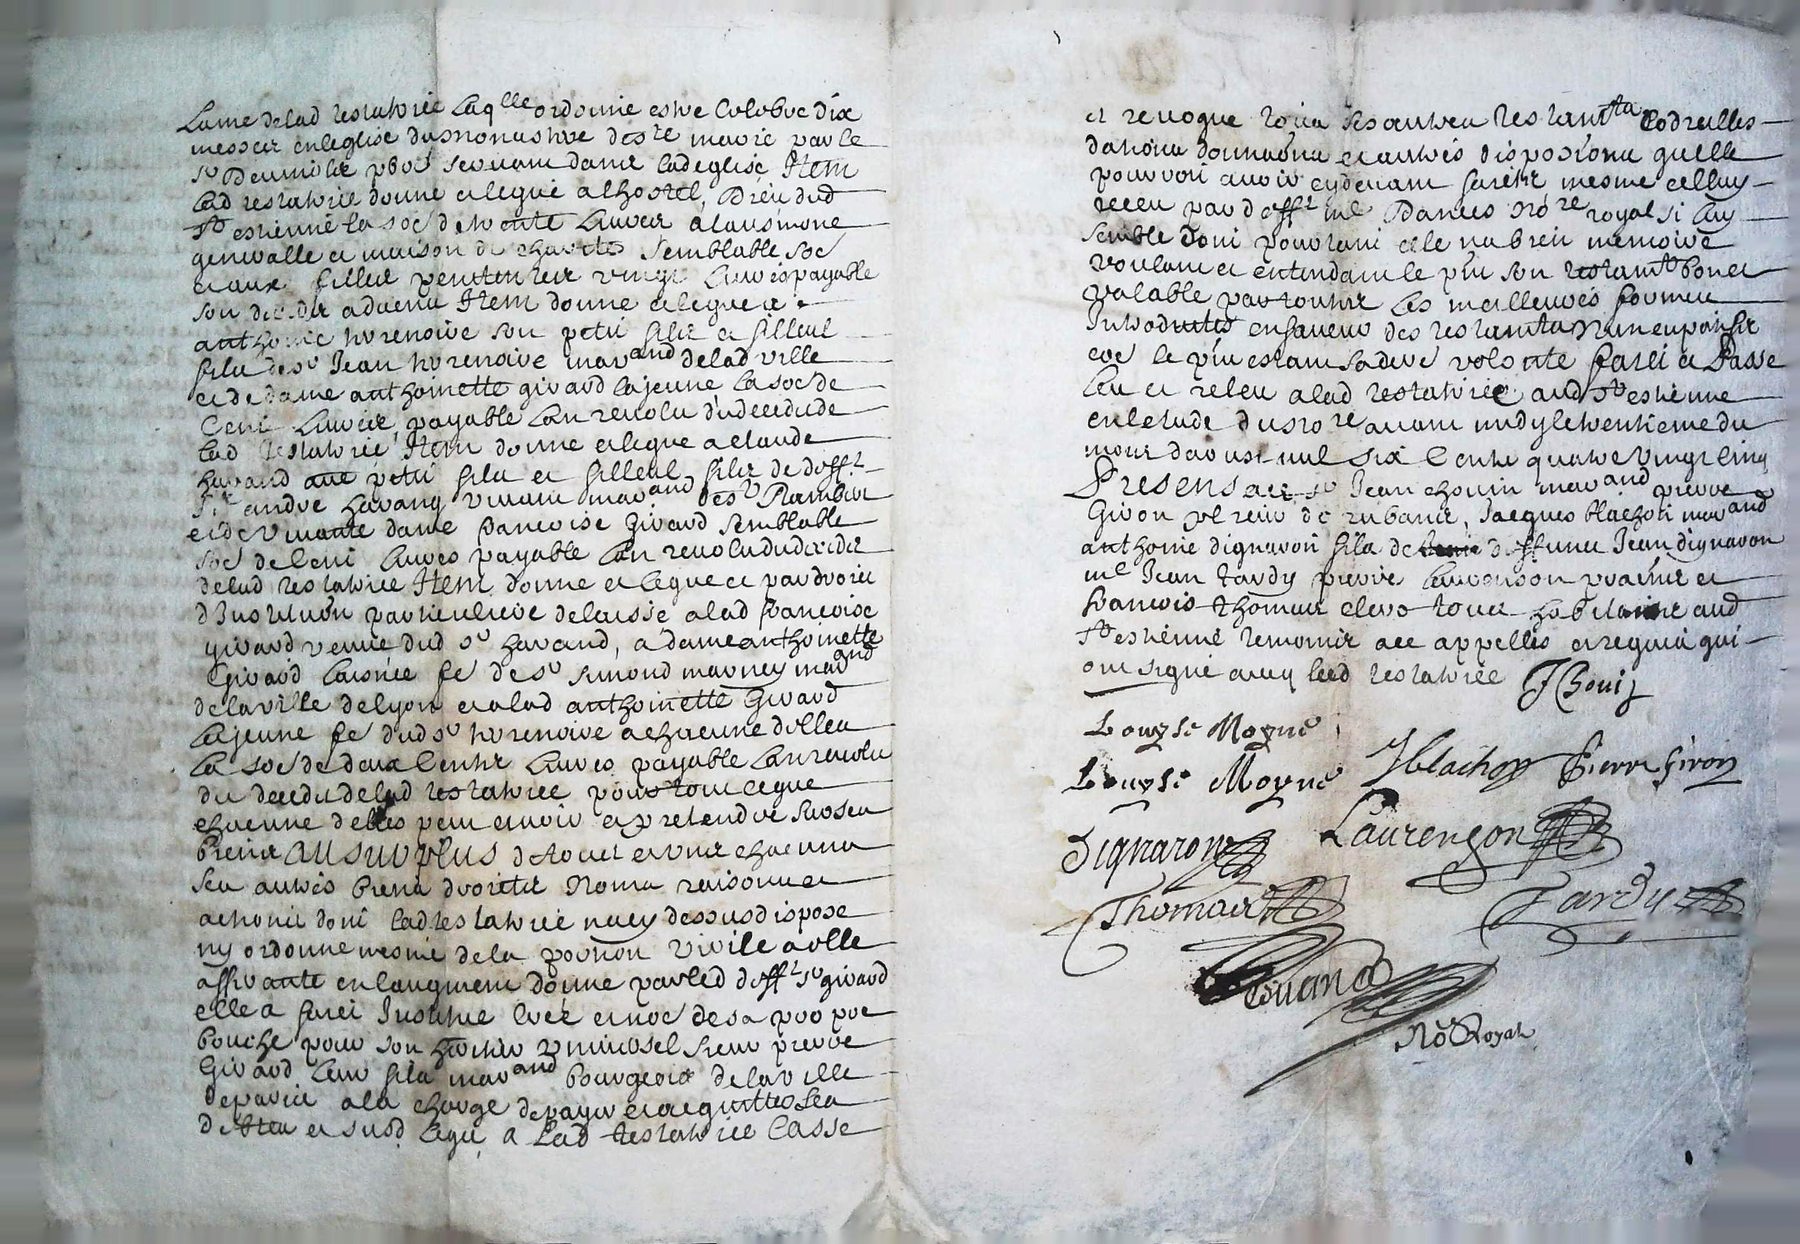 Lame delad testatrice Laqlle ordonne estre Celebre dix
messes en leglise du monastere de Ste marie par le
Sr pbre servant dans lad eglise Item
Lad testatrice donne et legue a lhostel Dieu dud
St estienne la soe de trante Livres a lausmone
generalle et maison de charité semblable soe
et aux filles penitentes vingt Livres payable
son deceds advenu Item donne et legue a
anthoine terenoire son petit fils et filleul
fils de sr Jean terenoire marand delad ville
et de dame anthoinette girard la jeune la soe de
Cent Livres payable Lan revolu du deceds de
lad testatrice Item donne et legue a claude
havand aue petit fils et filleul fils de defft
Sr andre havand vivant marand
et de vivante dame francoise Girard semblable
soe de Cent Livres payable Lan revolu du deceds
delad testatrice Item donne et legue et par droit
dInstitution particuliere delaisse a lad francoise
girard veuve dud Sr havand, a dame anthoinette
Girard Laisnée fe de Sr simond marand
de la ville de lyon et a lad anthoinette Girard
la jeune fe dud Sr terenoire a chacune delles
La soe de deux Cents Livres payable Lan revolu
du deceds delad testatrice pour tout ce que
chacune delles peut avoir et pretendre sur ses
biens Au surplus de tous et uns chacuns
ses autres biens droits Noms raisons et
actions dont lad testatrice na cy dessus dispose
ny ordonne mesme de la portion virile a elle
affirante en laugment donné par led defft Sr girard
elle a fait Institue Créé et noe de sa propre
bouche pour son heritier universel sieur pierre
Girard leur fils marand bourgeois de la ville
de paris a la charge de payer et acquitter ses
debtes et susd legs a Lad testatrice Casse
et revoque tous ses autres testamts Codicilles
donations et autres dispositions quelle
pourroit avoir cy devant faites mesme celluy
receu par defft me Nore royal si luy
semble dont pourtant elle na bien memoire
voulant et entendant le pnt son testamt bon et
valable par toutes les meilleures formes
Introduites en faveur des testamts
le pnt estant sa dere volonte fait et Passe
Leu et releu a lad testatrice aud St estienne
en lestude du nore avant midy le trentieme du
mois daoust mil six Cents quatre vingt cinq
Presens a ce sr Jean chouin marand pierre
Giron de rubans, Jacques blachon marand
anthoine dignaron fils de deffunct Jean dignaron
me Jean tardy pierre Laurenson praticien et
francois thomas clerc tous habitans aud
St estienne temoins a ce appelles et requis qui
ont signé avec lad testatrice J Chouin
Louyse Moyne
Louyse Moyne JBlachon Pierre Giron
Dignaron Laurençon
Thomas Tardy
Nore Royal